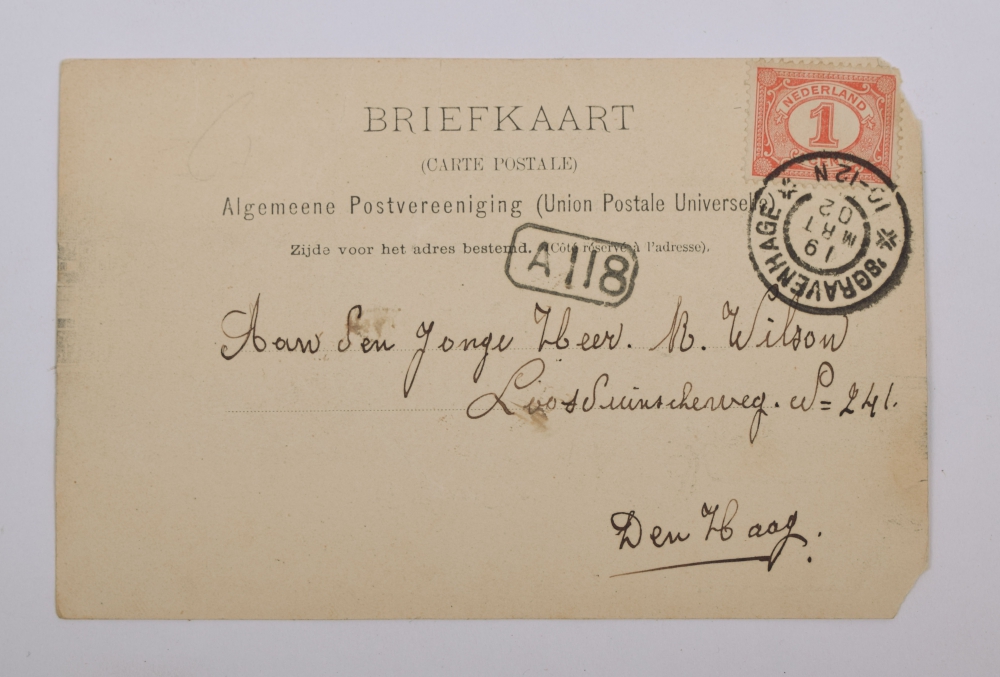 BRIEFKAART
(CARTE POSTALE)
Algemeene Postvereeniging (Union Postale Universelle)
Zijde voor het adres bestemd. (Côté réservé à l'adresse).
NEDERLAND
1
'SGRAVENHAGE
19
MRT
02
10-12N
A118
Aan den Jonge Heer. R. Wilson
Loosduinscheweg. No= 241.
Den Haag.